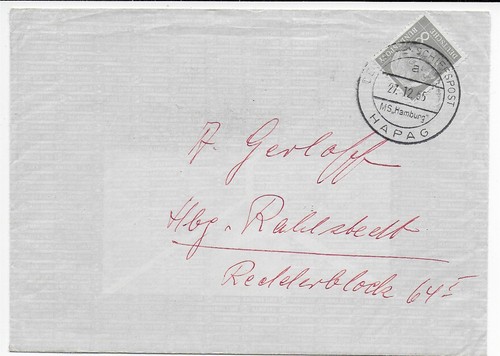 DEUTSCHE SCHIFFSPOST
a
21.12.65
MS„Hamburg”
HAPAG
A. Gerloff
Hbg.-Rahlstedt
Redderblock 64 I